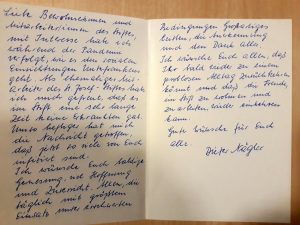 Liebe Bewohnerinnen und
Mitarbeiterinnen des Stiftes,
mit Interesse habe ich
während der Pandemie
verfolgt, wie es den sozialen
Einrichtungen
geht. Als ehemaliger Mit-
arbeiter des St. Josef-Stiftes habe
ich mich gefreut, daß es
im Stift eine sehr lange
Zeit keine Erkrankten gab.
Umso betroffener hat mich
die Nachricht getroffen,
daß jetzt so viele von Euch
infiziert sind.
Ich wünsche Euch baldige
Genesung, viel Hoffnung
und Zuversicht. Allen, die
täglich mit größtem
Einsatz unter erschwerten
Bedingungen Großartiges
leisten, die Anerkennung
und den Dank aller.
Ich wünsche Euch allen, daß
Ihr bald wieder zu einem
problosen Alltag zurückkehren
könnt und daß die Freude,
im Stift zu leben und
zu arbeiten wieder einkehren
kann.
Gute Wünsche für Euch
alle.
Dieter Nägler